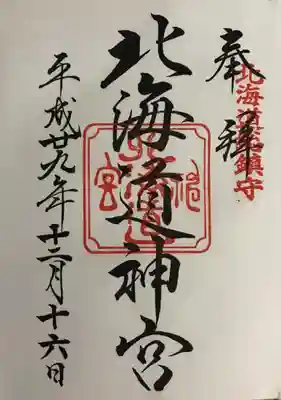 奉拝
北海道総鎮守
北海道神宮
平成廿九年十二月十六日